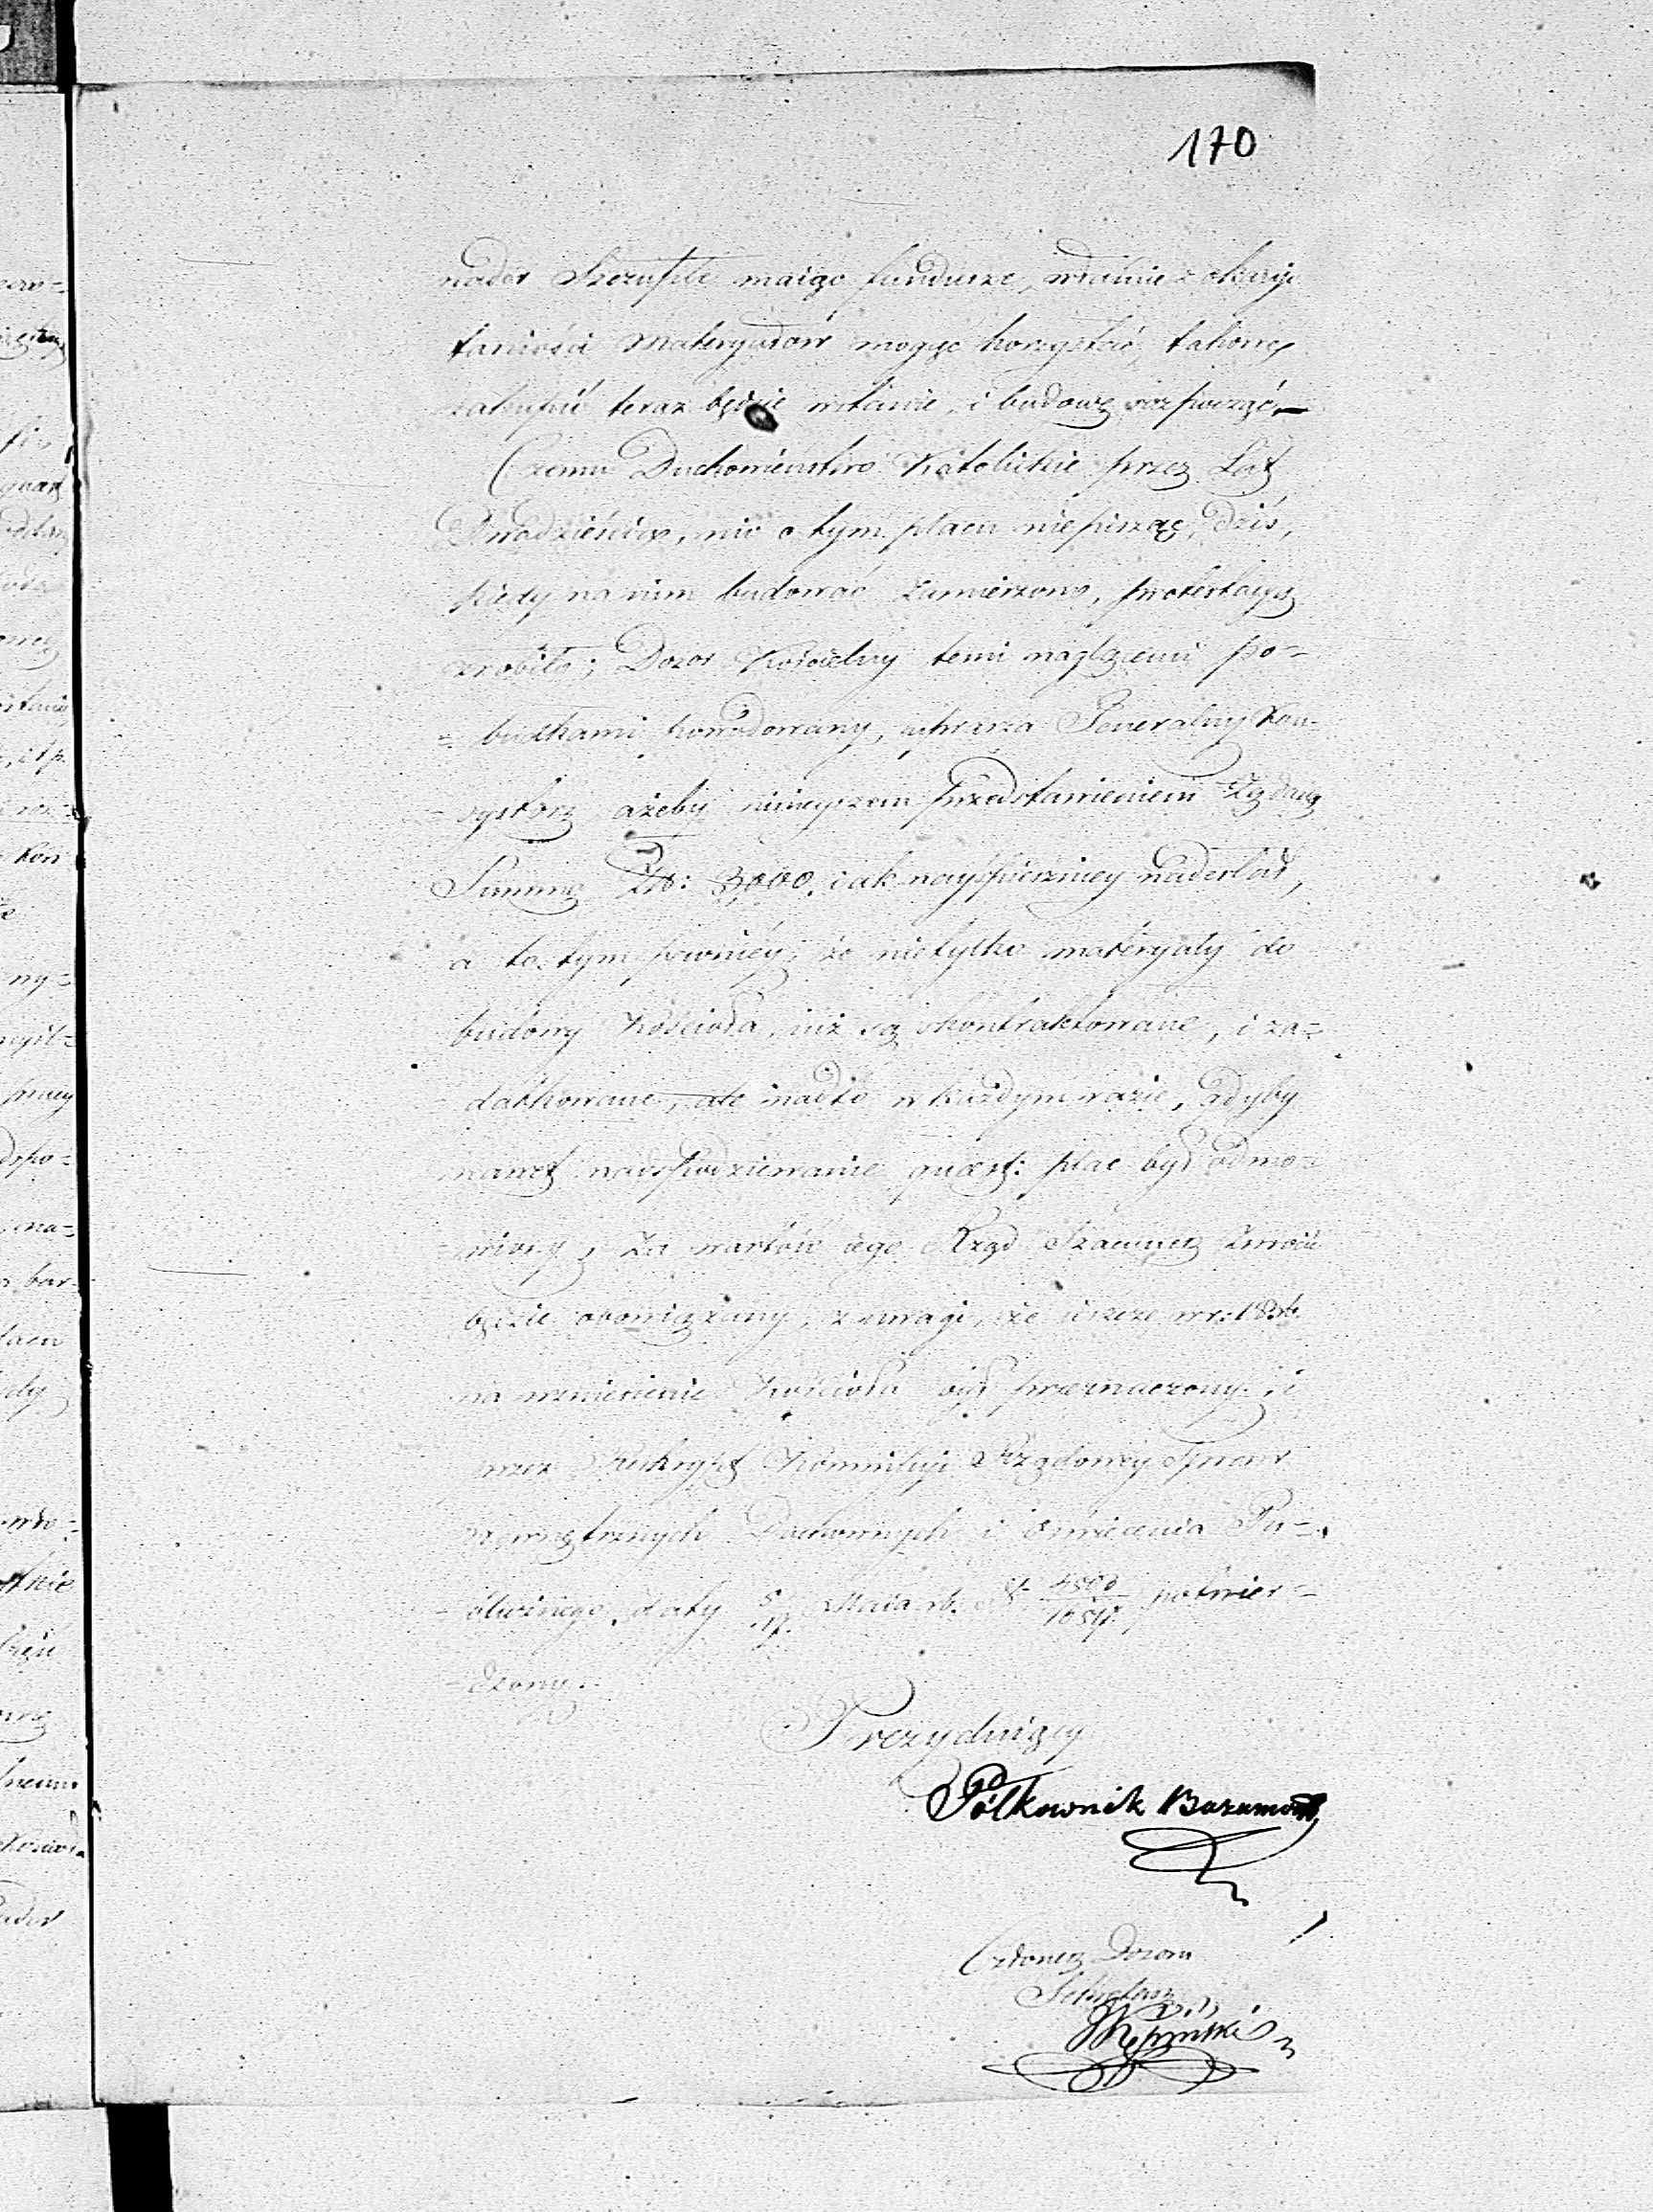 170
nader szczupłe maiąc fundusze, właśnie z okazyi
taniości materyałów mogąc korzystać, takowe
zakupić teraz będzie wstanie, i budowę rozpocząć. —
Czemu Duchowieństwo Katolickie przez Lat
Dwadzieścia, nic o tym placu niepisząc, dziś,
kiedy na nim budować zamierzono, protestacyą
zrobiło; Dozór Kościelny temi naglącemi po=
= budkami powodowany, uprasza Generalny Kon-
- systorz ażeby ninieyszem przedstawieniem żądaną
Summę Złp: 3000. iak nayśpieszniey nadesłał,
a to tym pewniéy, że nietylko materyały do
budowy Kościoła, iuż są skontraktowane, i za=
- datkowane, ale nadto w każdym razie, gdyby
nawet nadspodziewanie quaest: plac był odmó=
- wiony, za wartość iego Rząd Szacunek zwrócić
będzie obowiązany, z uwagi, że ieszcze w r: 18
na wzniesienie Kościoła był przeznaczony, i
przez Reskrypt Kommissyi Rządowey Spraw
Wewnętrznych Duchownych i Oświecenia Pu=
- blicznego, daty 5/17 Maia rb. N potwier=
- dzony.
Prezyduiący
Półkownik
Członek Dozoru
Sekretarz